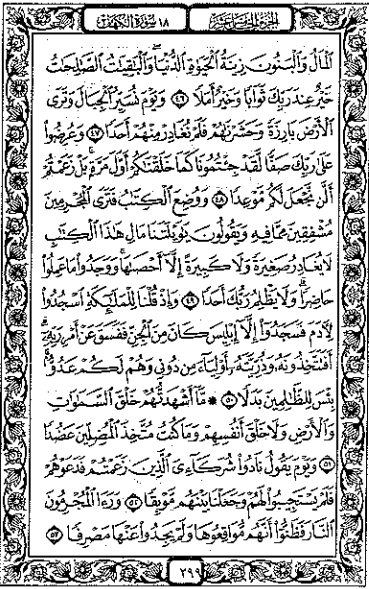 الجزء الخامس عشر
١٨ سورة الكهف
ٱلْمَالُ وَٱلْبَنُونَ زِينَةُ ٱلْحَيَوٰةِ ٱلدُّنْيَا ۖ وَٱلْبَٰقِيَٰتُ ٱلصَّٰلِحَٰتُ
خَيْرٌ عِندَ رَبِّكَ ثَوَابًا وَخَيْرٌ أَمَلًا ٤٦ وَيَوْمَ نُسَيِّرُ ٱلْجِبَالَ وَتَرَى
ٱلْأَرْضَ بَارِزَةً وَحَشَرْنَٰهُمْ فَلَمْ نُغَادِرْ مِنْهُمْ أَحَدًا ٤٧ وَعُرِضُوا۟
عَلَىٰ رَبِّكَ صَفًّا لَّقَدْ جِئْتُمُونَا كَمَا خَلَقْنَٰكُمْ أَوَّلَ مَرَّةٍۭ ۚ بَلْ زَعَمْتُمْ
أَلَّن نَّجْعَلَ لَكُم مَّوْعِدًا ٤٨ وَوُضِعَ ٱلْكِتَٰبُ فَتَرَى ٱلْمُجْرِمِينَ
مُشْفِقِينَ مِمَّا فِيهِ وَيَقُولُونَ يَٰوَيْلَتَنَا مَالِ هَٰذَا ٱلْكِتَٰبِ
لَا يُغَادِرُ صَغِيرَةً وَلَا كَبِيرَةً إِلَّآ أَحْصَىٰهَا ۚ وَوَجَدُوا۟ مَا عَمِلُوا۟
حَاضِرًا ۗ وَلَا يَظْلِمُ رَبُّكَ أَحَدًا ٤٩ وَإِذْ قُلْنَا لِلْمَلَٰٓئِكَةِ ٱسْجُدُوا۟
لِءَادَمَ فَسَجَدُوٓا۟ إِلَّآ إِبْلِيسَ كَانَ مِنَ ٱلْجِنِّ فَفَسَقَ عَنْ أَمْرِ رَبِّهِۦٓ ۗ
أَفَتَتَّخِذُونَهُۥ وَذُرِّيَّتَهُۥٓ أَوْلِيَآءَ مِن دُونِى وَهُمْ لَكُمْ عَدُوٌّۢ ۚ
بِئْسَ لِلظَّٰلِمِينَ بَدَلًا ٥٠ ۞ مَّآ أَشْهَدتُّهُمْ خَلْقَ ٱلسَّمَٰوَٰتِ
وَٱلْأَرْضِ وَلَا خَلْقَ أَنفُسِهِمْ وَمَا كُنتُ مُتَّخِذَ ٱلْمُضِلِّينَ عَضُدًا
٥١ وَيَوْمَ يَقُولُ نَادُوا۟ شُرَكَآءِىَ ٱلَّذِينَ زَعَمْتُمْ فَدَعَوْهُمْ
فَلَمْ يَسْتَجِيبُوا۟ لَهُمْ وَجَعَلْنَا بَيْنَهُم مَّوْبِقًا ٥٢ وَرَءَا ٱلْمُجْرِمُونَ
ٱلنَّارَ فَظَنُّوٓا۟ أَنَّهُم مُّوَاقِعُوهَا وَلَمْ يَجِدُوا۟ عَنْهَا مَصْرِفًا ٥٣
٢٩٩